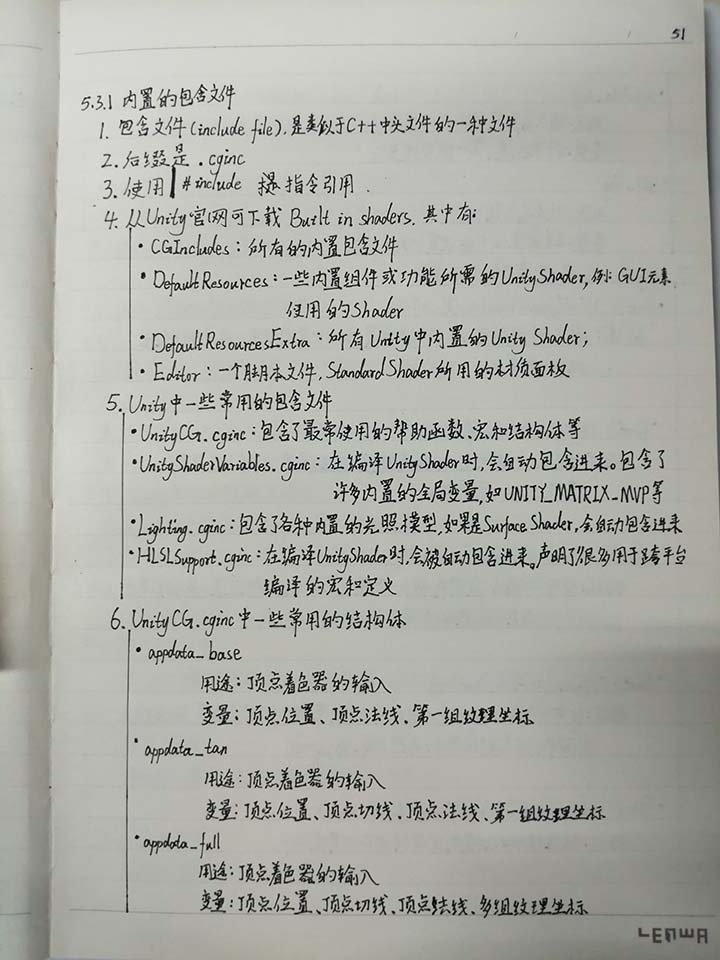 51
5.3.1 内置的包含文件
1. 包含文件(include file),是类似于C++中头文件的一种文件
2. 后缀是 .cginc
3. 使用 #include 指令引用.
4. 从Unity官网可下载 Built in shaders. 其中有:
• CGIncludes:所有的内置包含文件
• DefaultResources:一些内置组件或功能所需的UnityShader,例:GUI元素
使用的Shader
• DefaultResourcesExtra:所有Unity中内置的Unity Shader;
• Editor:一个脚本文件,StandardShader所用的材质面板
5. Unity中一些常用的包含文件
• UnityCG.cginc:包含了最常使用的帮助函数、宏和结构体等
• UnityShaderVariables.cginc:在编译UnityShader时,会自动包含进来。包含了
许多内置的全局变量,如UNITY_MATRIX_MVP等
• Lighting.cginc:包含了各种内置的光照模型,如果是Surface Shader,会自动包含进来
• HLSLSupport.cginc:在编译UnityShader时,会被自动包含进来。声明了很多用于跨平台
编译的宏和定义
6. UnityCG.cginc中一些常用的结构体
• appdata_base
用途:顶点着色器的输入
变量:顶点位置、顶点法线、第一组纹理坐标
• appdata_tan
用途:顶点着色器的输入
变量:顶点位置、顶点切线、顶点法线、第一组纹理坐标
• appdata_full
用途:顶点着色器的输入
变量:顶点位置、顶点切线、顶点法线、多组纹理坐标